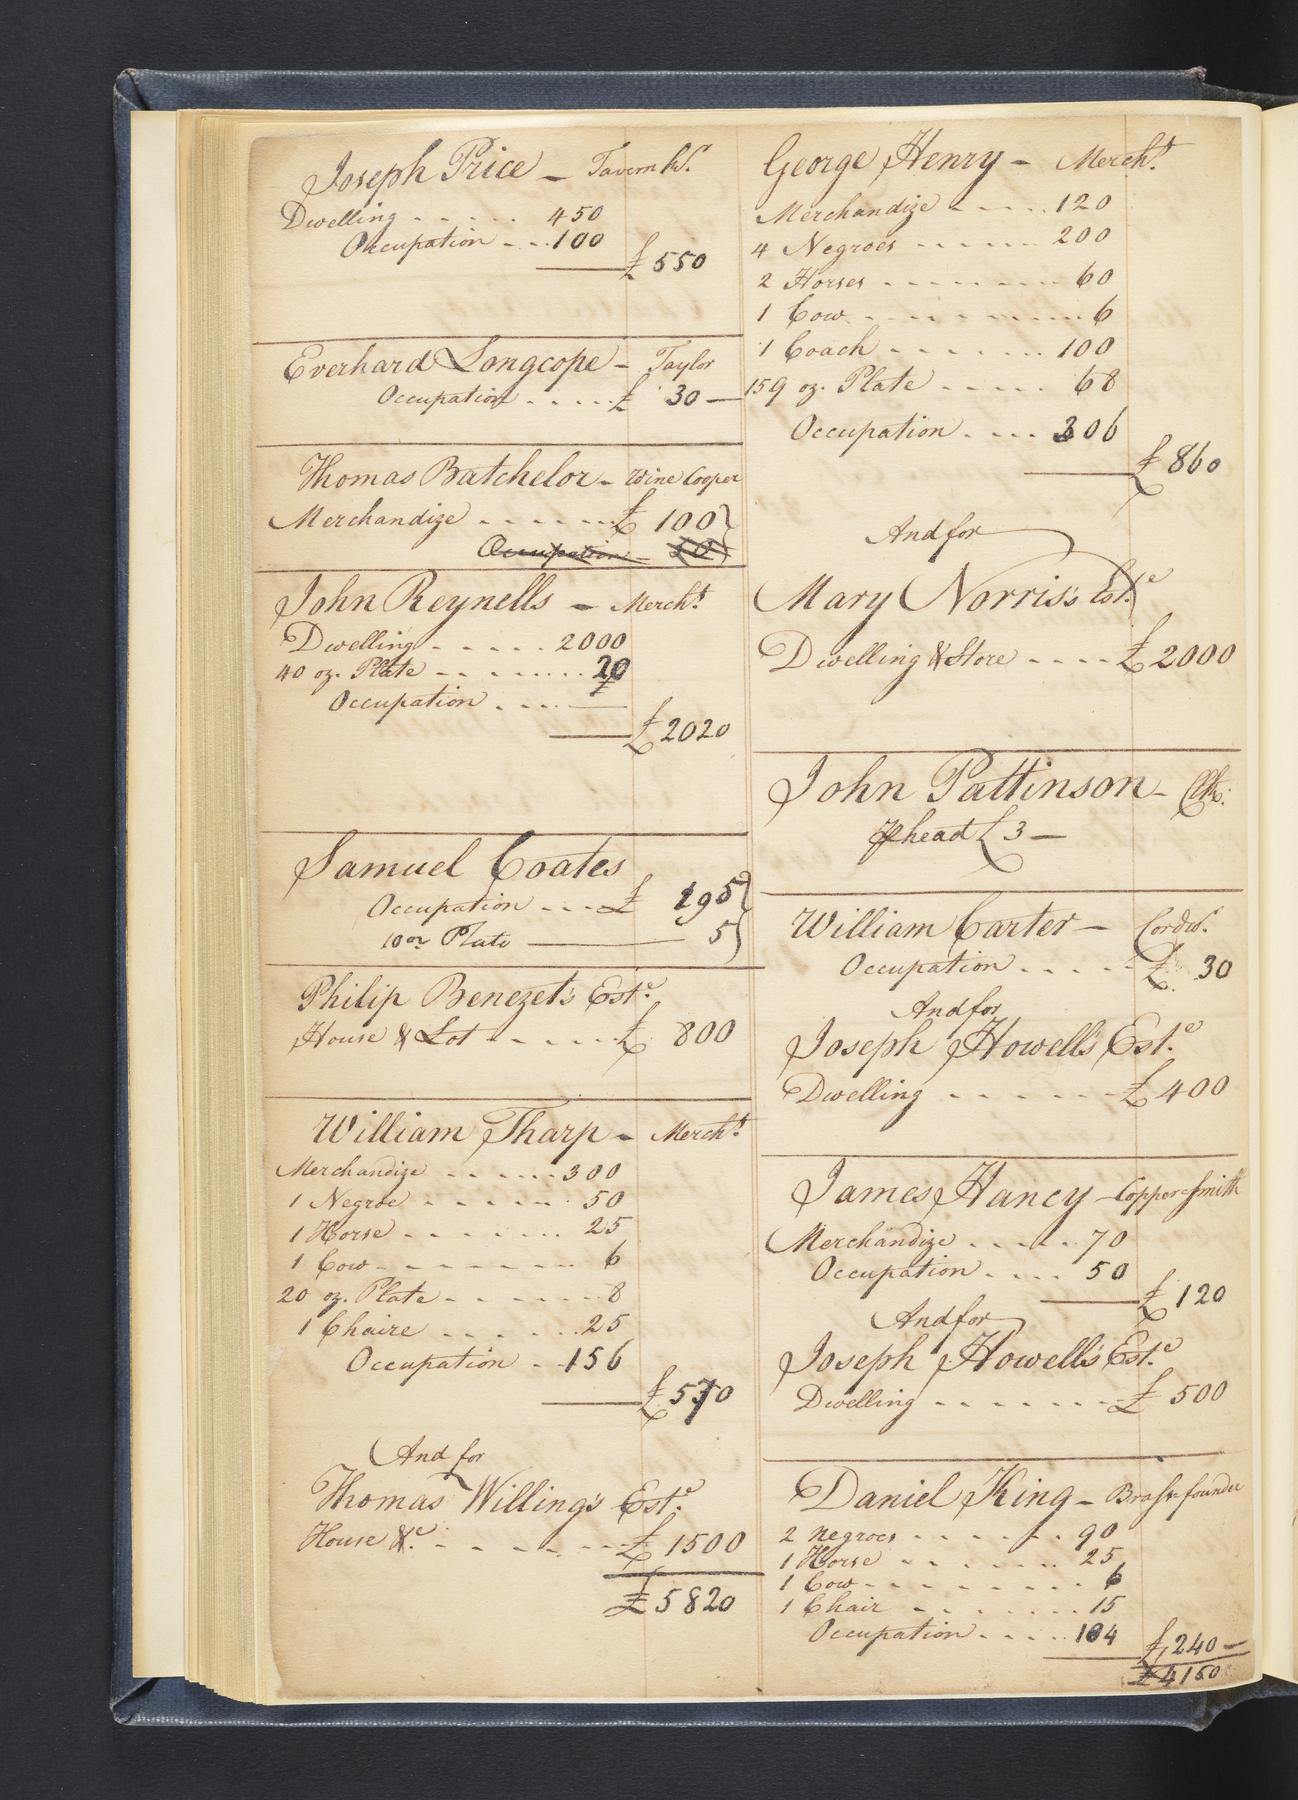 Joseph Price - Tavernkr.
Dwelling - - - - - 450
Occupation - - 100
£ 550
Everhard Longcope - Taylor
Occupation - - - - £ 30 —
Thomas Batchelor - Wine Cooper
Merchandize - - - - - - £ 100
Occupation -
John Reynells - Mercht.
Dwelling - - - - - 2000
40 oz. Plate - - - - - - 20
Occupation - - -
£ 2020
Samuel Coates
Occupation - - - £ 195
10 oz Plate 5
Philip Benezet's Este.
House & Lot - - - - - £ 800
William Tharp - Mercht.
Merchandize - - - - - 300
1 Negroe - - - - - - 50
1 Horse - - - - - - 25
1 Cow - - - - - - - 6
20 oz. Plate - - - - - - 8
1 Chaire - - - - - - 25
Occupation - - 156
£ 570
And for
Thomas Willing's Este.
House &c. - - - - - - £ 1500
£ 5820
George Henry - Mercht.
Merchandize - - - - 120
4 Negroes - - - - - - 200
2 Horses - - - - - - - 60
1 Cow - - - - - - - - 6
1 Coach - - - - - - - 100
159 oz. Plate - - - - - 68
Occupation - - - - 306
£ 860
And for
Mary Norris's Este.
Dwelling & Store - - - - £ 2000
John Pattinson - Clk.
⅌ head £ 3 —
William Carter - Cordwr.
Occupation - - - - - £ 30
And for
Joseph Howell's Este.
Dwelling - - - - - - £ 400
James Hancy - Coppersmith
Merchandize - - - - - 70
Occupation - - - - 50
£ 120
And for
Joseph Howell's Este.
Dwelling - - - - - - - £ 500
Daniel King - Brass founder
2 Negroes - - - - - - 90
1 Horse - - - - - - 25
1 Cow - - - - - - - - 6
1 Chair - - - - - - - 15
Occupation - - - - 104
£ 240 —
£ 4150